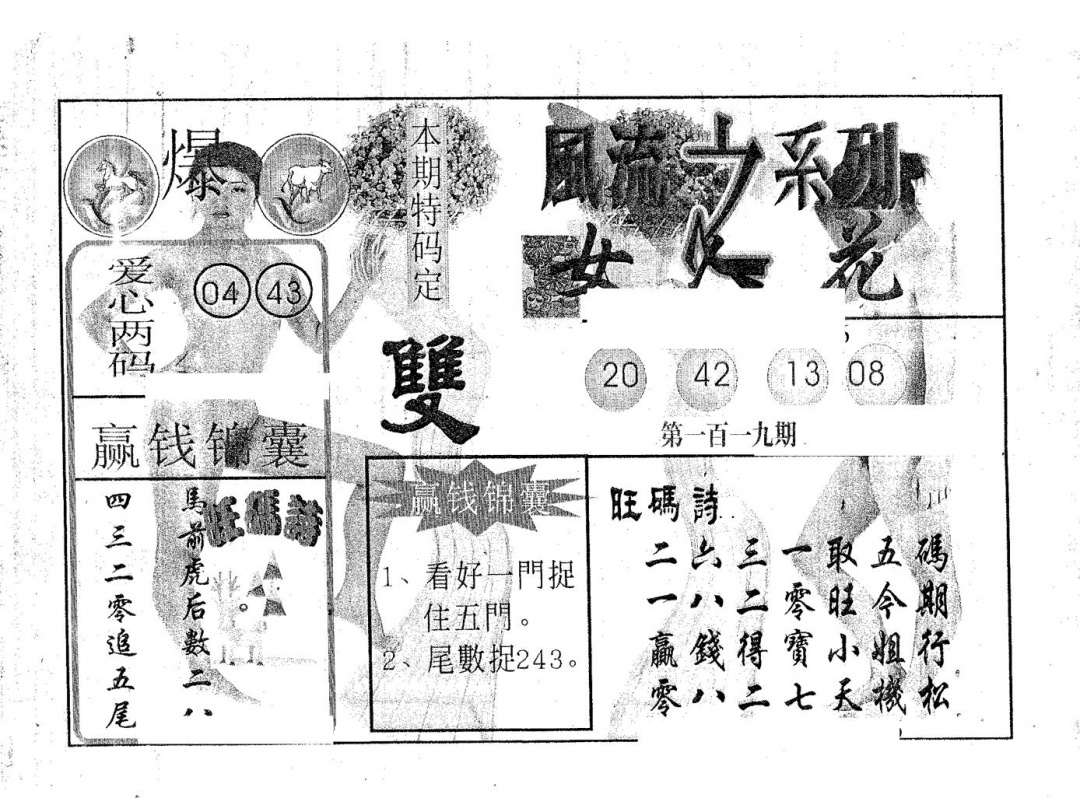 風流之系列
女人花
爆
本期特码定
雙
爱心两码
04 43
20 42 13 08
第一百一九期
赢钱锦囊
旺碼詩
馬前虎后數二八
四三二零追五尾
赢钱锦囊
1、看好一門捉
住五門。
2、尾數捉243。
旺碼詩
碼期行松
五今姐機
取旺小天
一零寶七
三二得二
六八錢八
二一贏零